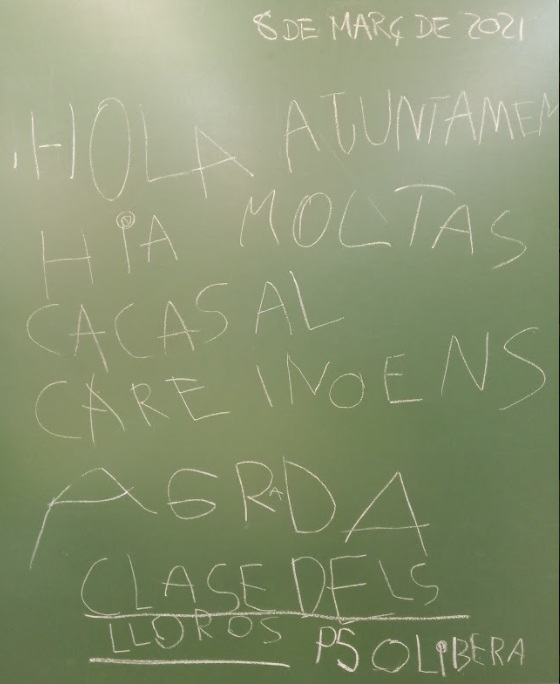 8 DE MARÇ DE 2021
HOLA AJUNTAMEN
HIA MOLTAS
CACAS AL
CARE INOENS
AGRADA
CLASE DELS
LLOROS P5 OLIBERA